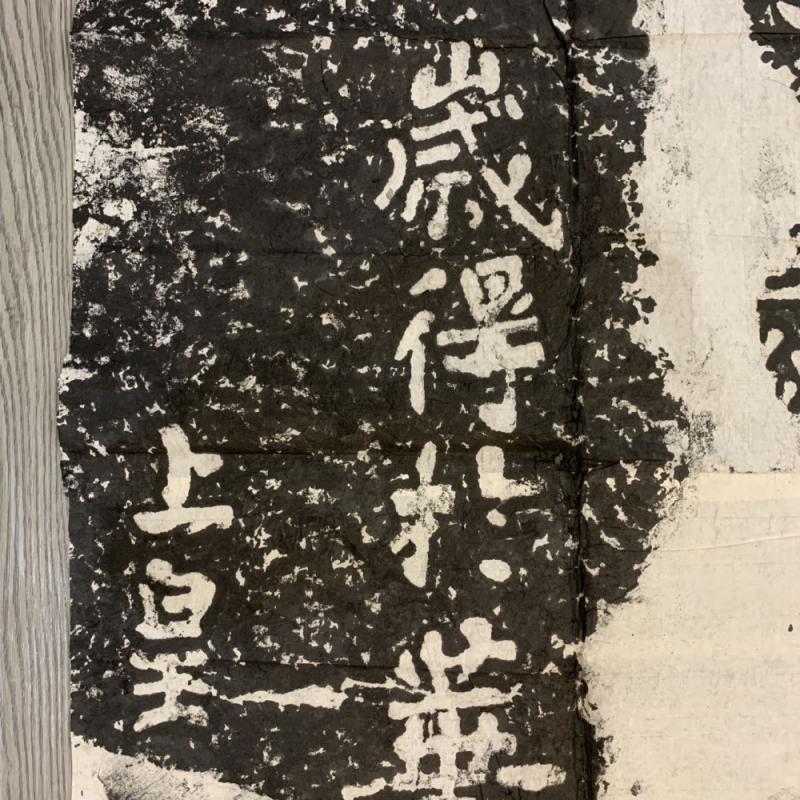 歲得扵華
上皇